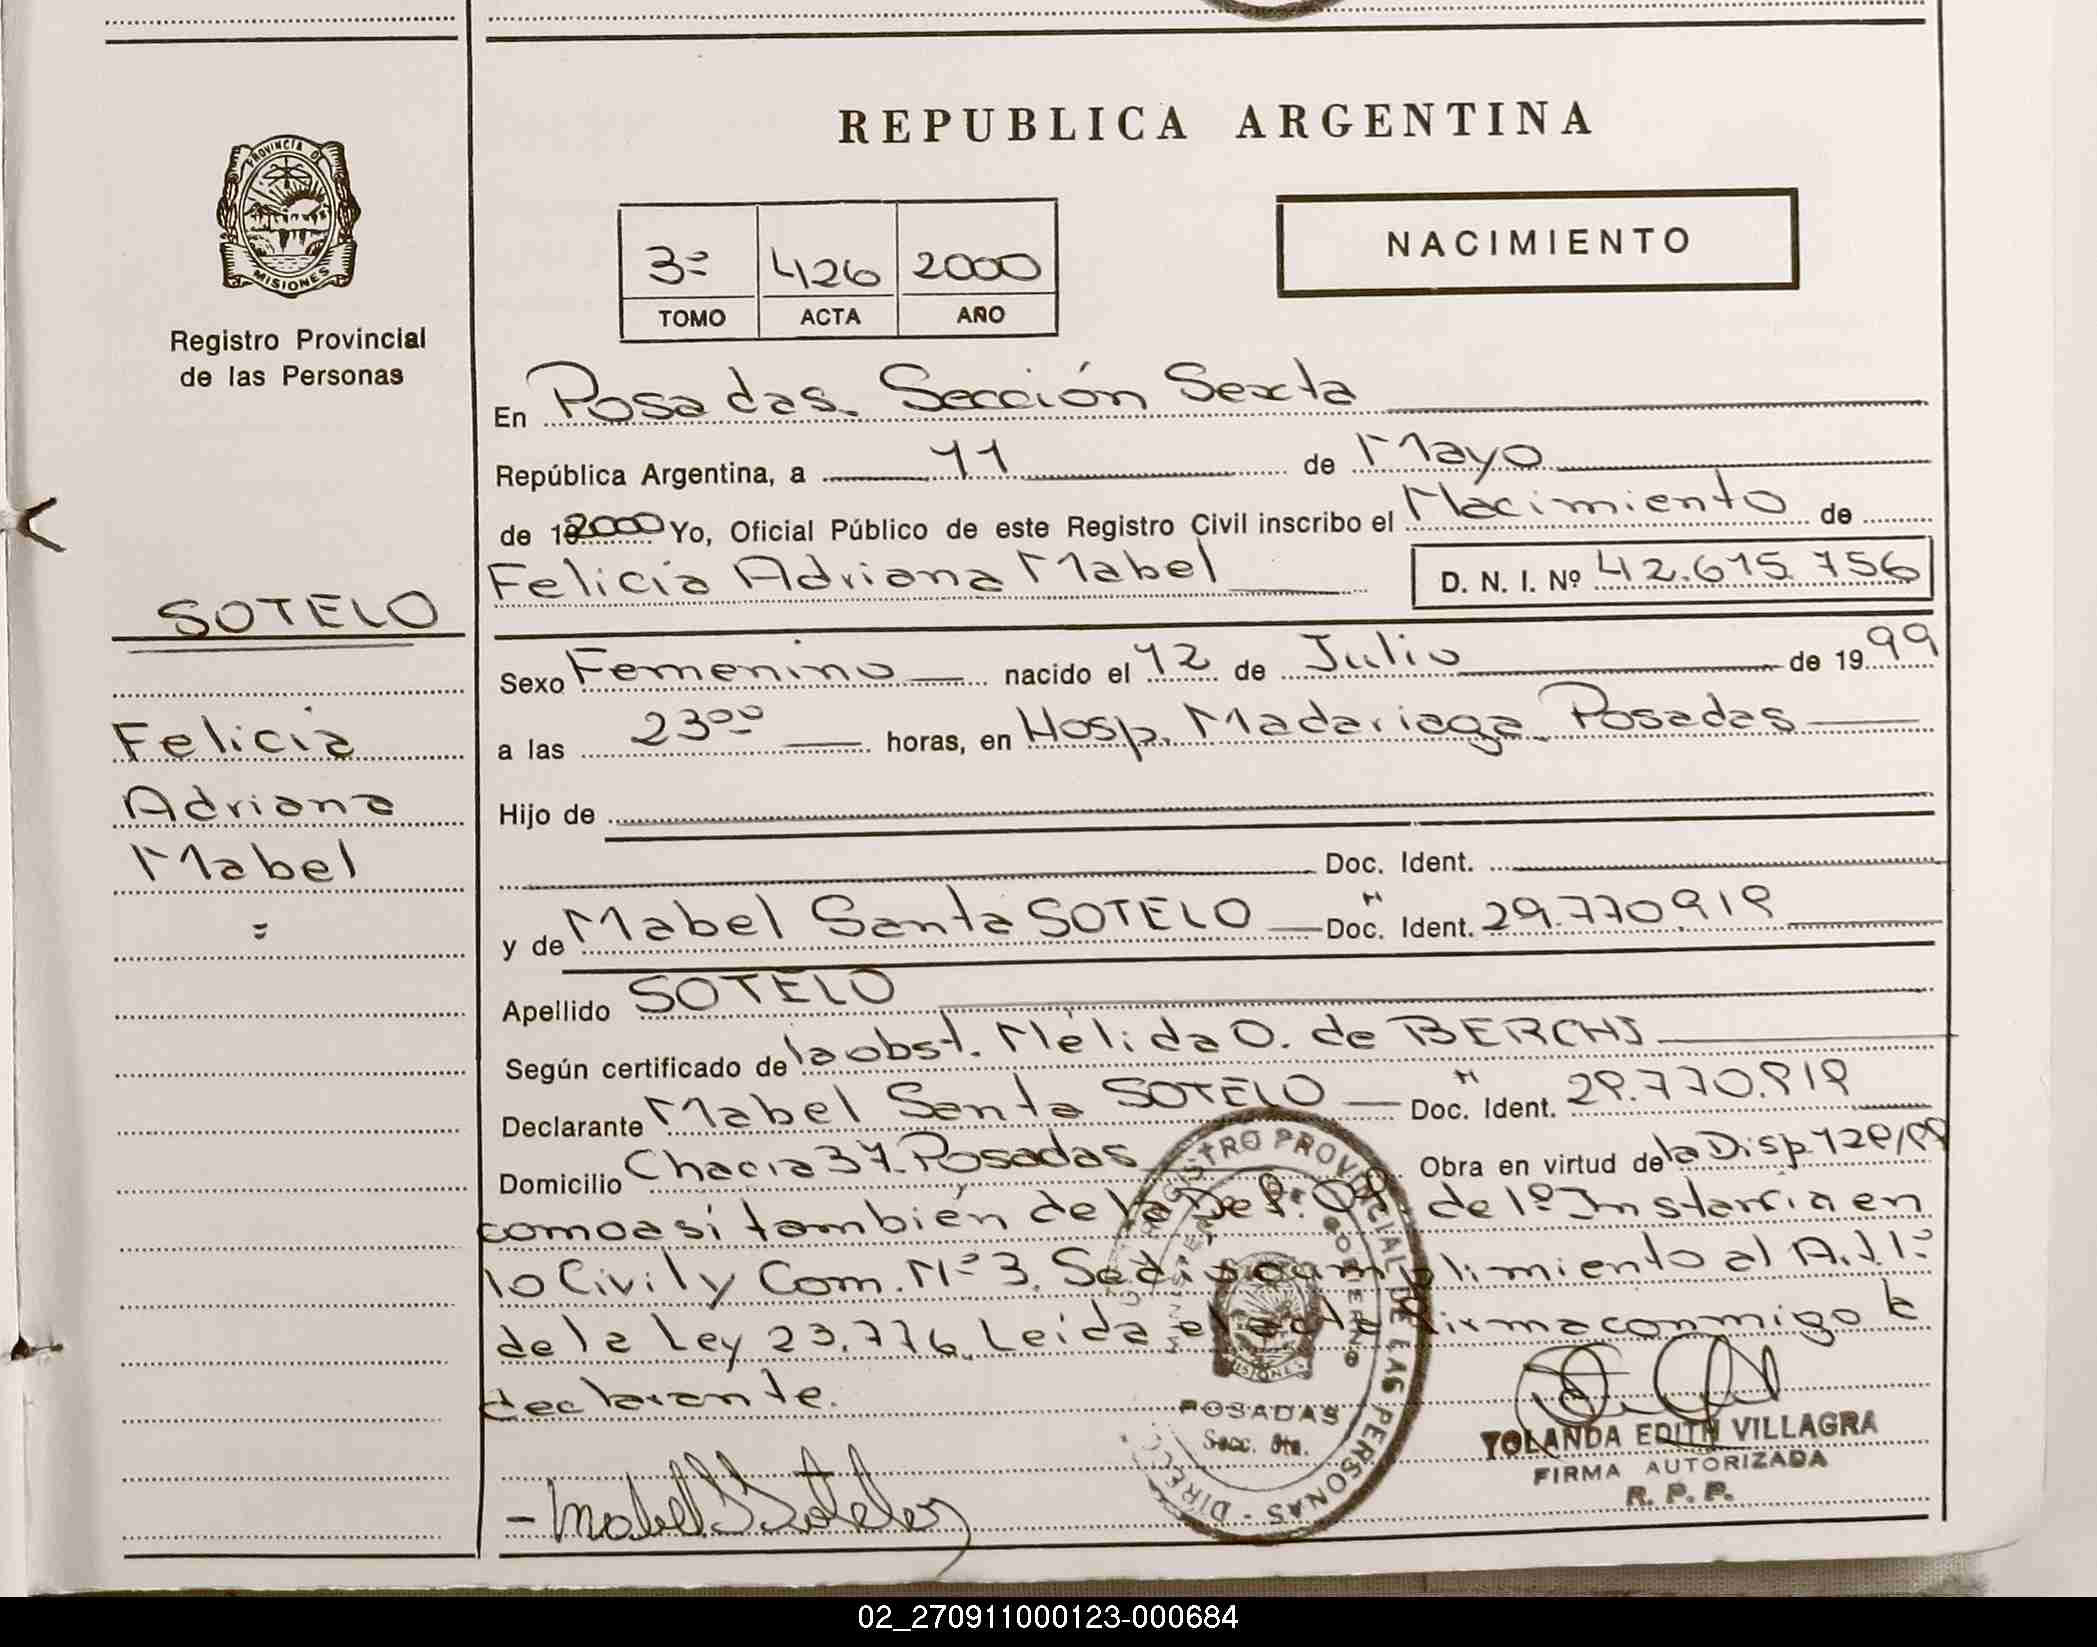 REPUBLICA ARGENTINA
PROVINCIA DE
MISIONES
Registro Provincial
de las Personas
3º 426 2000
TOMO ACTA AÑO
NACIMIENTO
En Posadas. Sección Sexta
República Argentina, a 11 de Mayo
de 192000 Yo, Oficial Público de este Registro Civil inscribo el Nacimiento de
Felicia Adriana Mabel D. N. I. Nº 42.615.756
SOTELO
Felicia
Adriana
Mabel
=
Sexo Femenino nacido el 12 de Julio de 1999
a las 23⁰⁰ horas, en Hosp. Madariaga. Posadas
Hijo de
Doc. Ident.
y de Mabel Santa SOTELO Doc. Ident. 29.770.919
Apellido SOTELO
Según certificado de la obst. Nélida O. de BERCHI
Declarante Mabel Santa SOTELO Doc. Ident. 29.770.919
Domicilio Chacra 37. Posadas Obra en virtud de la Disp. 129/99
como así también de la Def. Of. de 1º Instancia en
lo Civil y Com. Nº 3. Se dió cumplimiento al A. 11º
de la Ley 23.776. Leída el acta firma conmigo la
declarante.
REGISTRO PROVINCIAL DE LAS PERSONAS - DIREC
MISIONES
POSADAS
Secc. 6ta.
YOLANDA EDITH VILLAGRA
FIRMA AUTORIZADA
R. P. P.
- Mabel S Sotelo
02_270911000123-000684